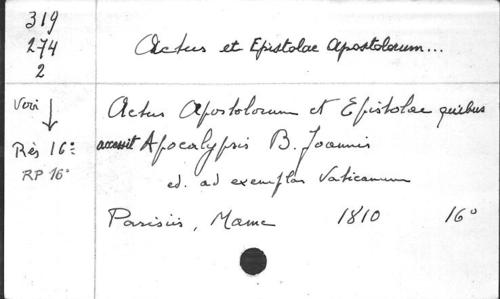 319
274
2
Actus et Epistolae Apostolorum...
Voir ↓
Rés 16°
RP 16°
Actus Apostolorum et Epistolae quibus
accessit Apocalypsis B. Joannis
ed. ad exemplar Vaticanum
Parisiis, Mame 1810 16°